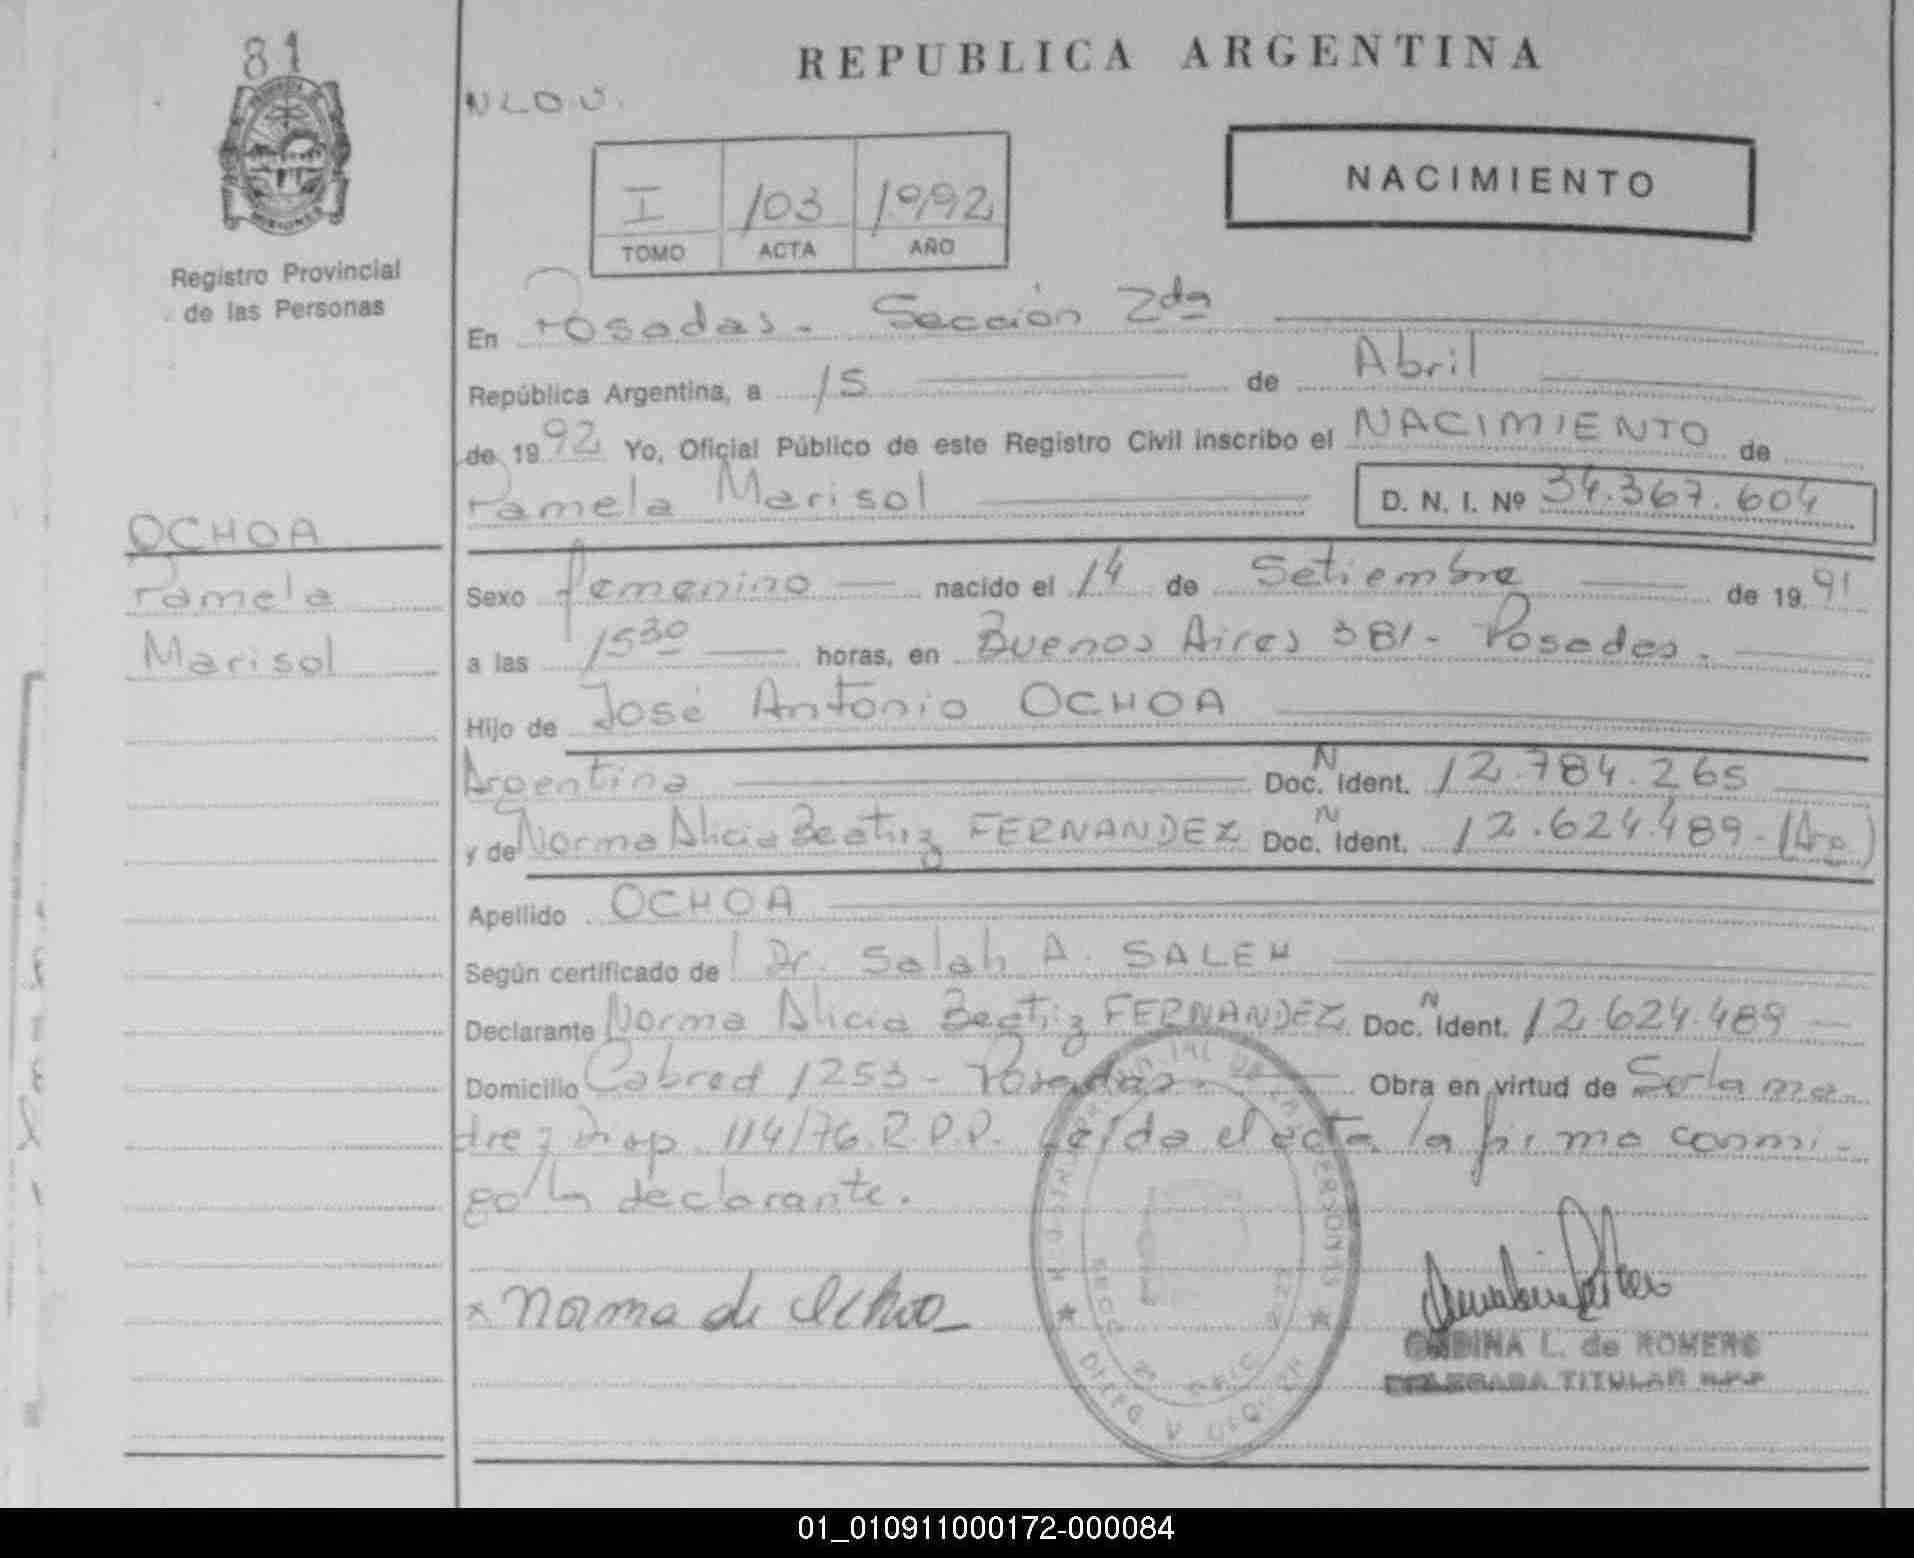 81
REPUBLICA ARGENTINA
N L O. U.
NACIMIENTO
I 103 1992
TOMO ACTA AÑO
Registro Provincial
de las Personas
En Posadas - Sección 2da
República Argentina, a 15 de Abril
de 1992 Yo, Oficial Público de este Registro Civil inscribo el NACIMIENTO de
Pamela Marisol D. N. I. Nº 34.367.604
OCHOA
Pamela
Marisol
Sexo femenino nacido el 14 de Setiembre de 1991
a las 15 30 horas, en Buenos Aires 381 - Posadas.
Hijo de José Antonio OCHOA
Argentina Doc. N Ident. 12.784.265
y de Norma Alicia Beatriz FERNANDEZ Doc. N Ident. 12.624.489 - (Arg)
Apellido OCHOA
Según certificado de Dr. Salah A. SALEH
Declarante Norma Alicia Beatriz FERNANDEZ Doc. N Ident. 12.624.489
Domicilio Cabred 1253 - Posadas. Obra en virtud de Ser la ma-
dre; Disp. 114/76. R.P.P. Leída el acta la firma conmi-
go la declarante.
x Norma de Ochoa
ONDINA L. de ROMERO
DELEGADA TITULAR R.P.P
01_010911000172-000084